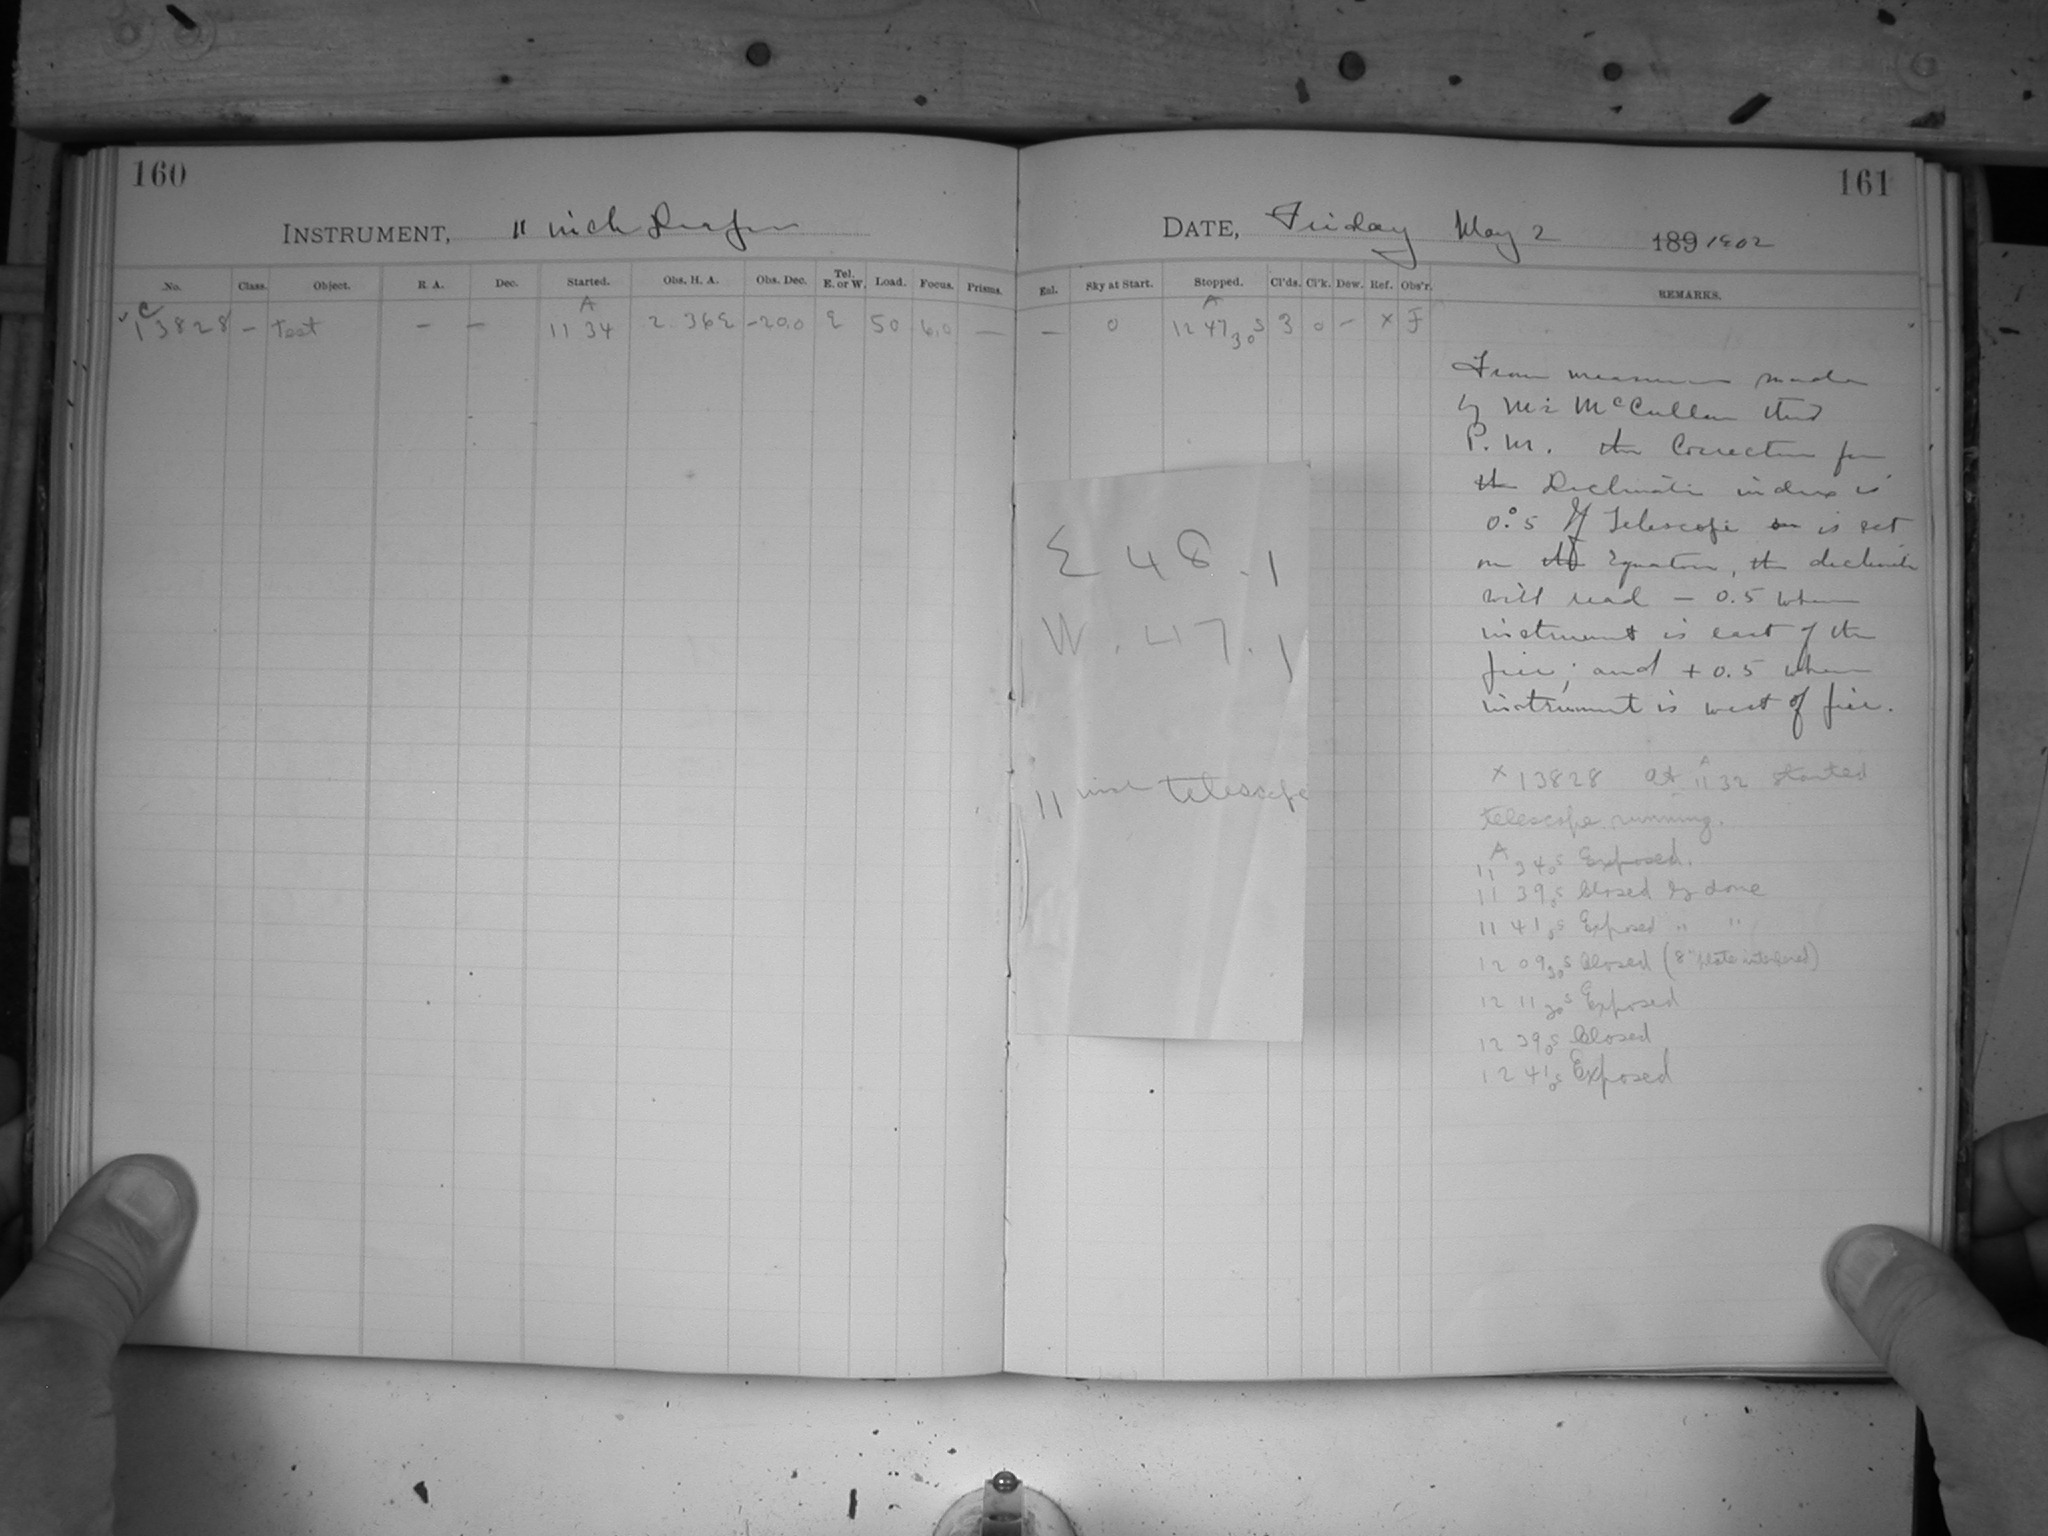 160
INSTRUMENT, 11 inch Draper
No. Class. Object. R. A. Dec. Started. Obs. H. A. Obs. Dec. Tel. E. or W. Load. Focus. Prisms.
C A
13828 – test – – 11 34 2 36 E –20.0 E 50 6.0 —
161
DATE, Friday May 2 189 1902
Enl. Sky at Start. Stopped. Cl'ds. Cl'k. Dew. Ref. Obs'r. REMARKS.
A
— 0 12 47 30 s 3 0 – x F
From measures made
by Mr McCullen this
P. M. the Correction for
the Declination index is
0.°5 If Telescope is set
on the Equator, the declination
will read – 0.5 when
instrument is east of the
pier; and + 0.5 when
instrument is west of pier.
E 48.1
W. 47.1
11 inch telescope
x 13828 at A 11 32 started
telescope running.
A
11 34 0s Exposed.
11 39 0s Closed by dome
11 41 0s Exposed " "
12 09 30s Closed (8" plate interfered)
12 11 30s Exposed
12 39 0s Closed
12 41 0s Exposed